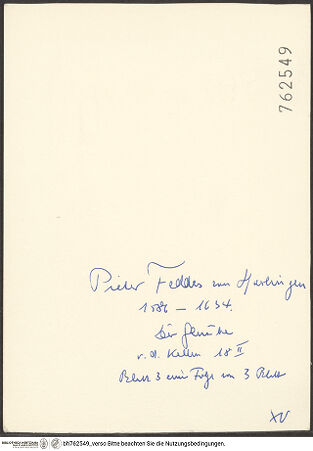 762549
Pieter Feddes von Harlingen
1586 – 1634.
Der
v. d. Kellen 18 II
Blatt 3 einer Folge von 3 Blatt
XV
bh762549_verso Bitte beachten Sie die Nutzungsbedingungen.